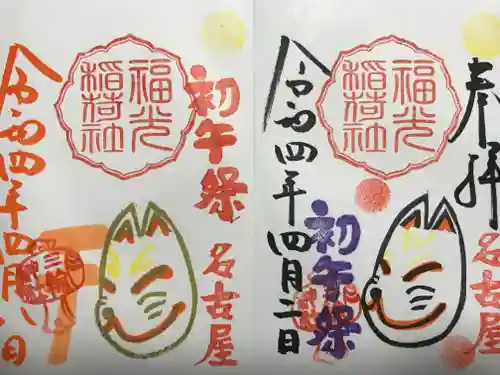 初午祭
福光
稲荷社
令和四年四月
日
名古屋
奉拝
福光
稲荷社
令和四年四月二日
初午祭
名古屋